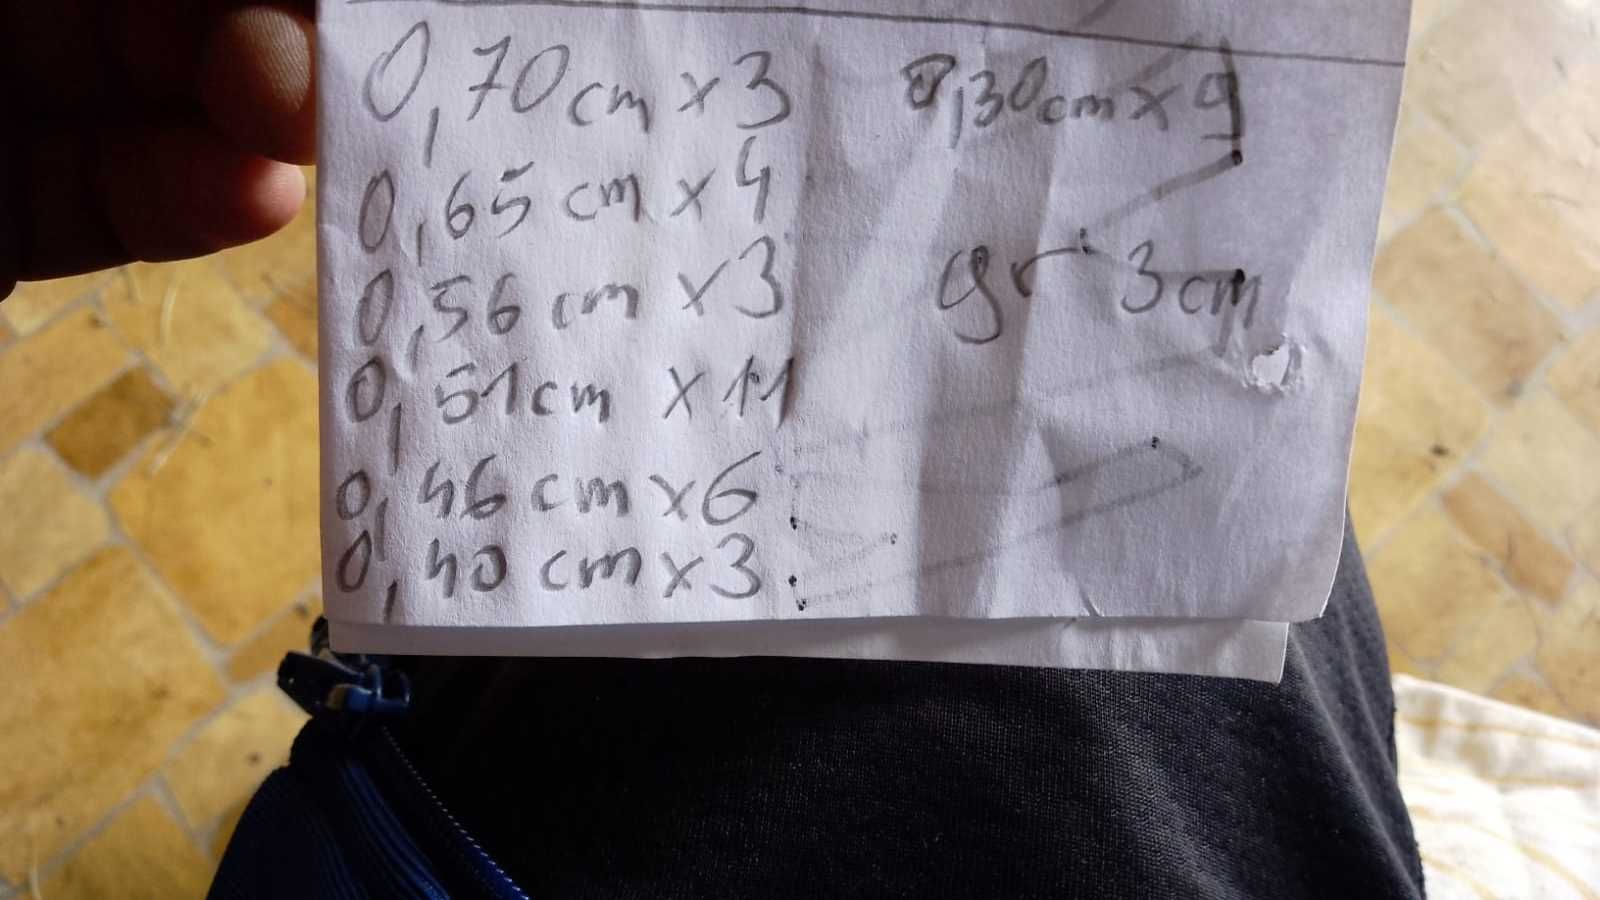 0,70cm x 3
0,65 cm x 4
0,56 cm x 3
0,51cm x 11
0,46 cm x 6
0,40 cm x 3
0,30cm x 9
gr 3 cm